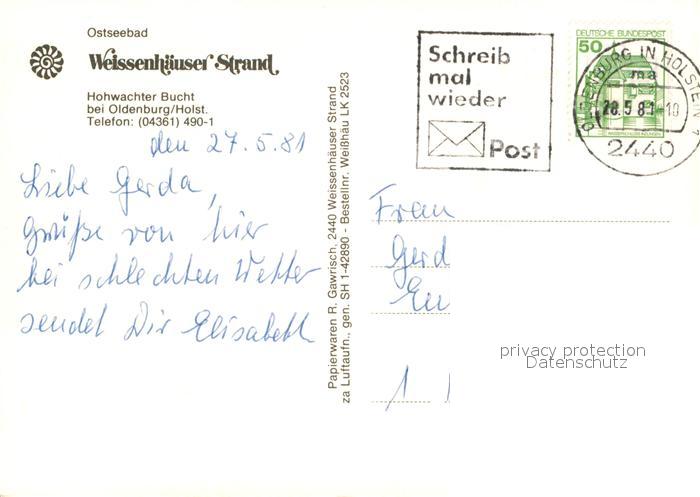 Ostseebad
Weissenhäuser Strand
Hohwachter Bucht
bei Oldenburg/Holst.
Telefon: (04361) 490-1
den 27.5.81
Liebe Gerda,
Grüße von hier
bei schlechten Wetter
sendet Dir Elisabeth
Papierwaren R. Gawrisch, 2440 Weissenhäuser Strand
za Luftaufn., gen. SH 1-42890 - Bestellnr. Weißhäu LK 2523
Schreib
mal
wieder
Post
DEUTSCHE BUNDESPOST
50
OLDENBURG IN HOLSTEIN
ma
28.5.81-10
2440
Frau
Gerd
privacy protection
Datenschutz